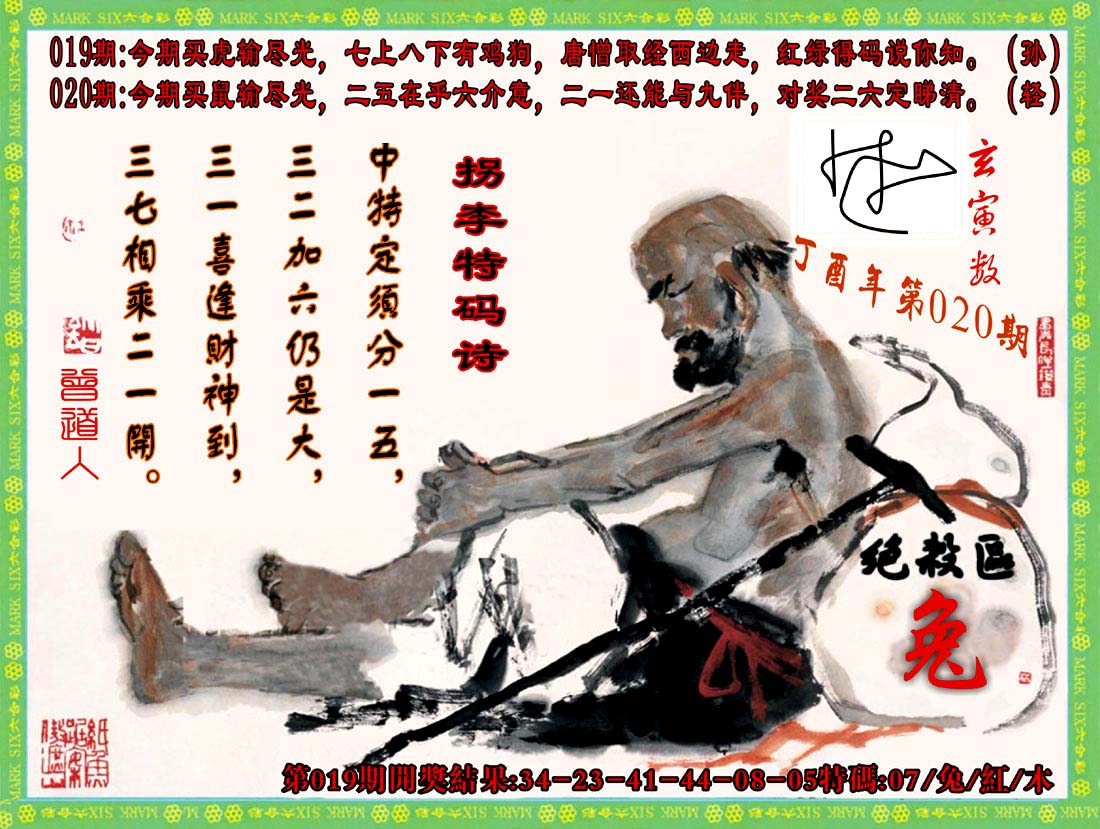 MARK SIX六合彩
019期:今期买虎输尽光，七上八下有鸡狗，唐憎取经西边走，红绿得码说你知。（孙）
020期:今期买鼠输尽光，二五在乎六介意，二一还能与九伴，对奖二六定睇清。（轻）
玄寅数
丁酉年第020期
拐李特码诗
中特定须分一五，
三二加六仍是大，
三一喜逢财神到，
三七相乘二一開。
曾道人
绝殺區
兔
第019期開獎結果:34-23-41-44-08-05特碼:07/兔/紅/木